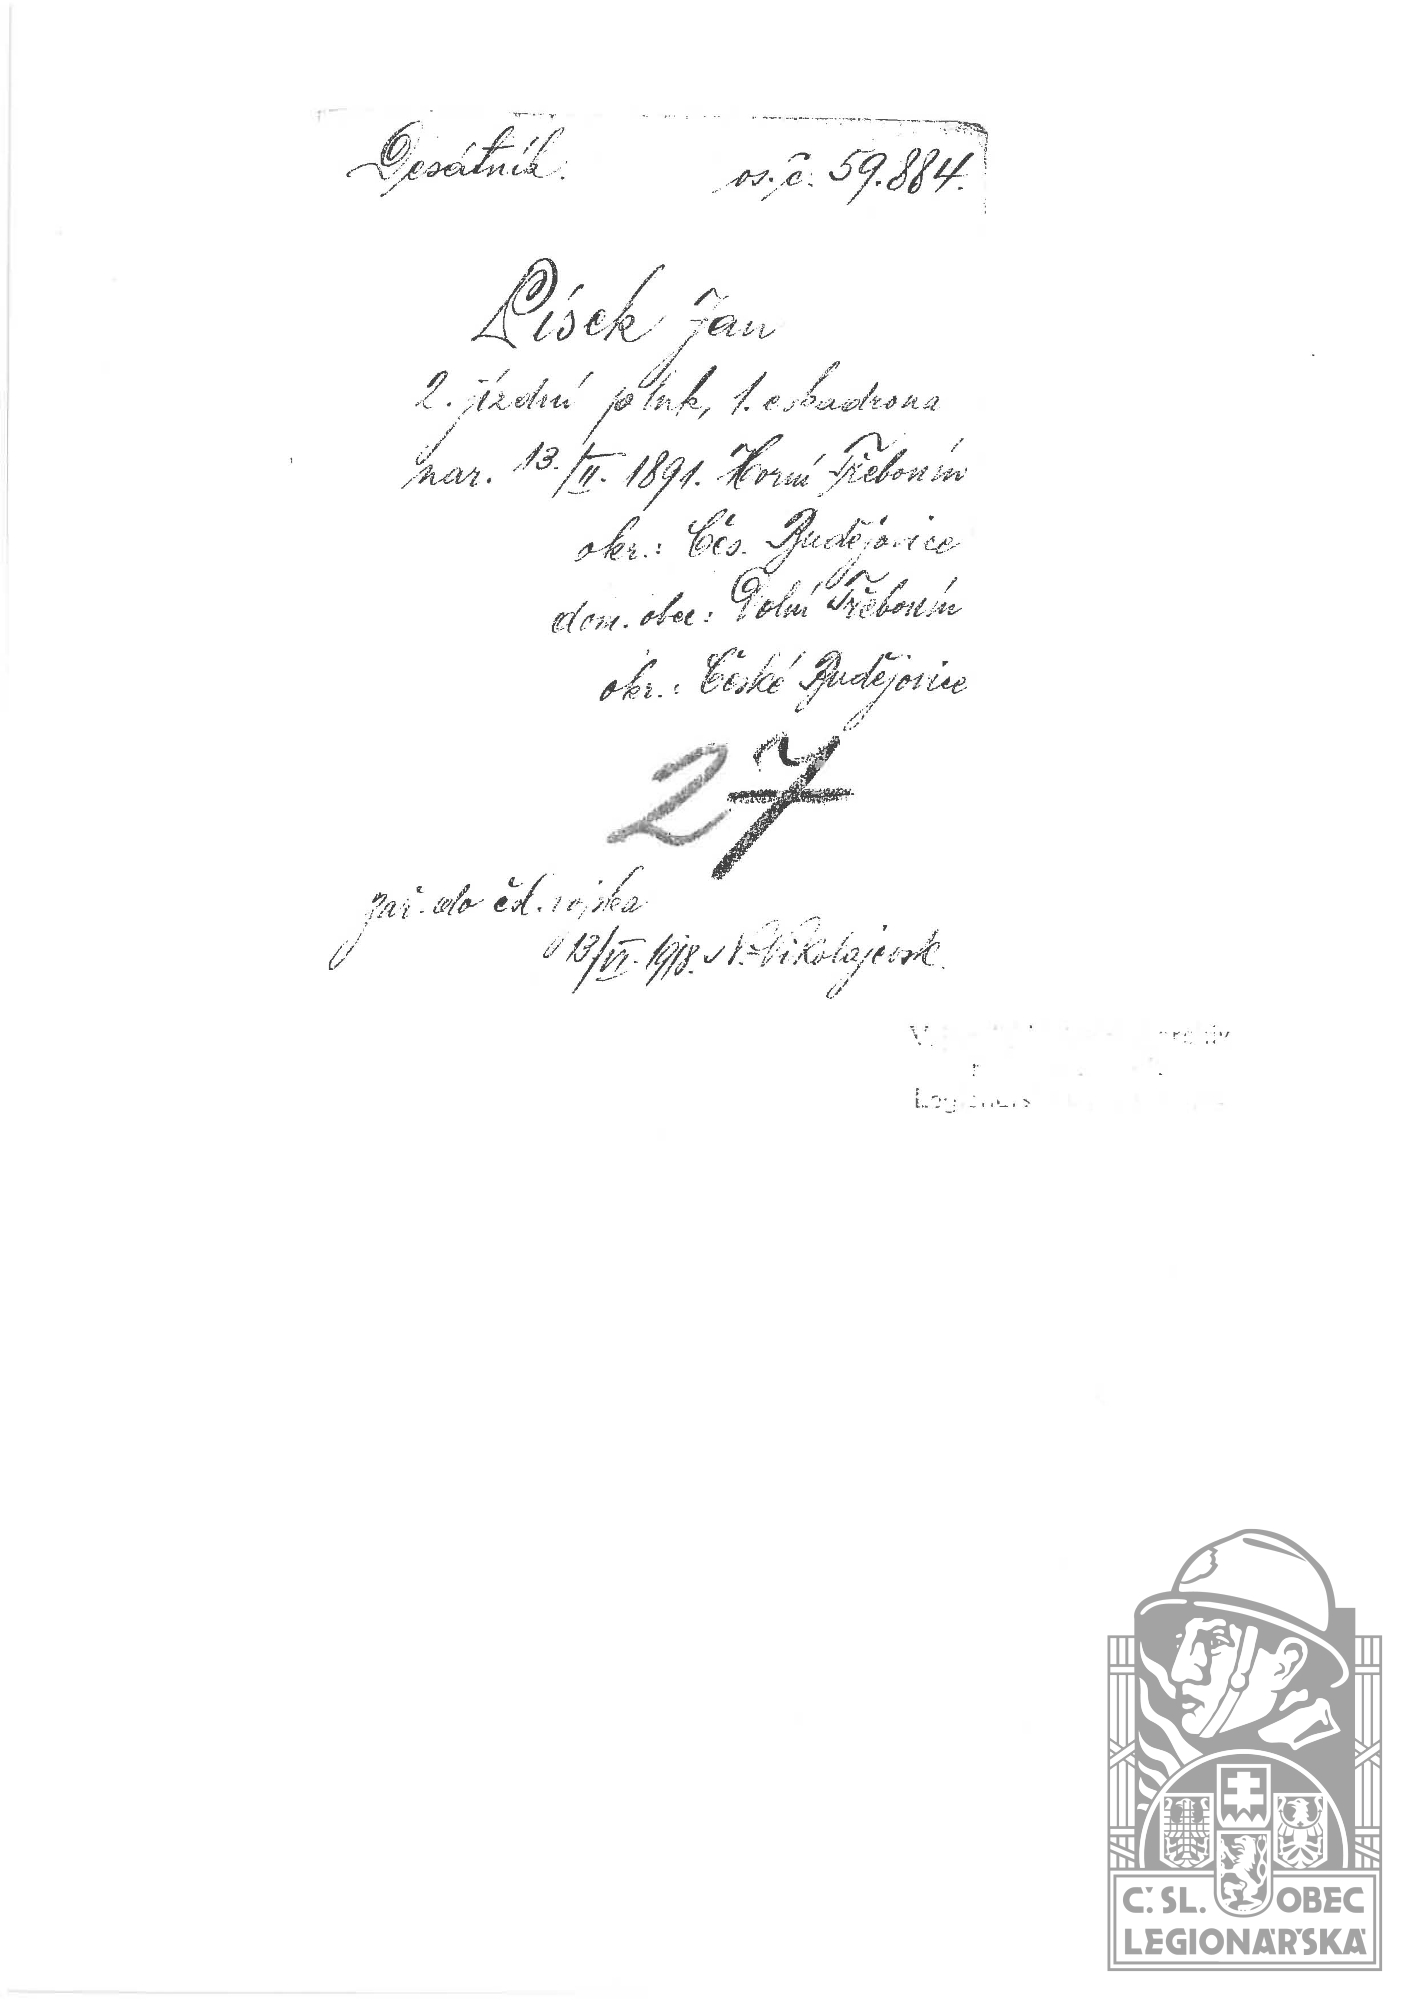 Desátník. os. č. 59.884.
Písek Jan
2. jízdní pluk, 1. eskadrona
nar. 13./II. 1891. Horní Třebonín
okr.: Čes. Budějovice
dom. obec: Dolní Třebonín
okr.: České Budějovice
27
zař. do čsl. vojska
13/VI. 1918. v N.-Nikolajevsk.
archiv
Č. SL. OBEC
LEGIONÁŘSKÁ